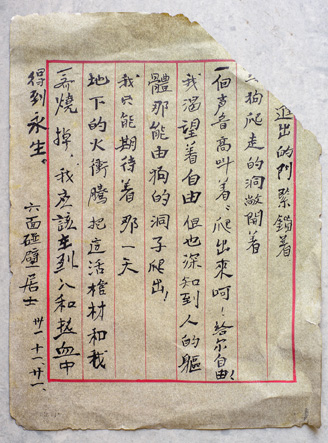 進出的门緊鎖着
狗爬走的洞敞開着
一個声音高叫着：爬出來呵！給尔自由！
我渴望着自由但也深知到人的軀
體那能由狗的洞子爬出！
我只能期待着那一天
地下的火衝騰把這活棺材和我
一齊燒掉，我應該在烈火和热血中
得到永生。
六面碰壁居士 卅一．十一．廿一．